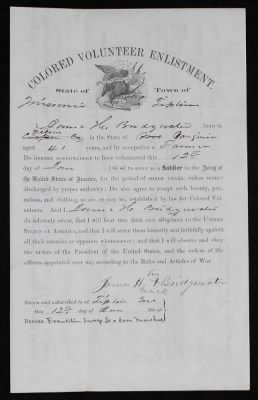 COLORED VOLUNTEER ENLISTMENT.
State of Town of
Missouri Tipton
I, James H. Bridgwater born in
in the State of Virginia
aged 41 years, and by occupation a Farmer
DO HEREBY ACKNOWLEDGE to have volunteered this 12th
day of Jan 1864 to serve as a Soldier in the Army of
the United States of America, for the period of THREE YEARS, unless sooner
discharged by proper authority: Do also agree to accept such bounty, pay,
rations, and clothing, as are, or may be, established by law for Colored Vol-
unteers. And I, James H. Bridgwater
do solemnly swear, that I will bear true faith and allegiance to the UNITED
STATES OF AMERICA, and that I will serve them honestly and faithfully against
all their enemies or opposers whomsoever; and that I will observe and obey
the orders of the President of the United States, and the orders of the
officers appointed over me, according to the Rules and Articles of War.
his
James H. X Bridgewater
mark
Sworn and subscribed to at Tipton Mo
this 12th day of Jan 1864
BEFORE Franklin Marshal